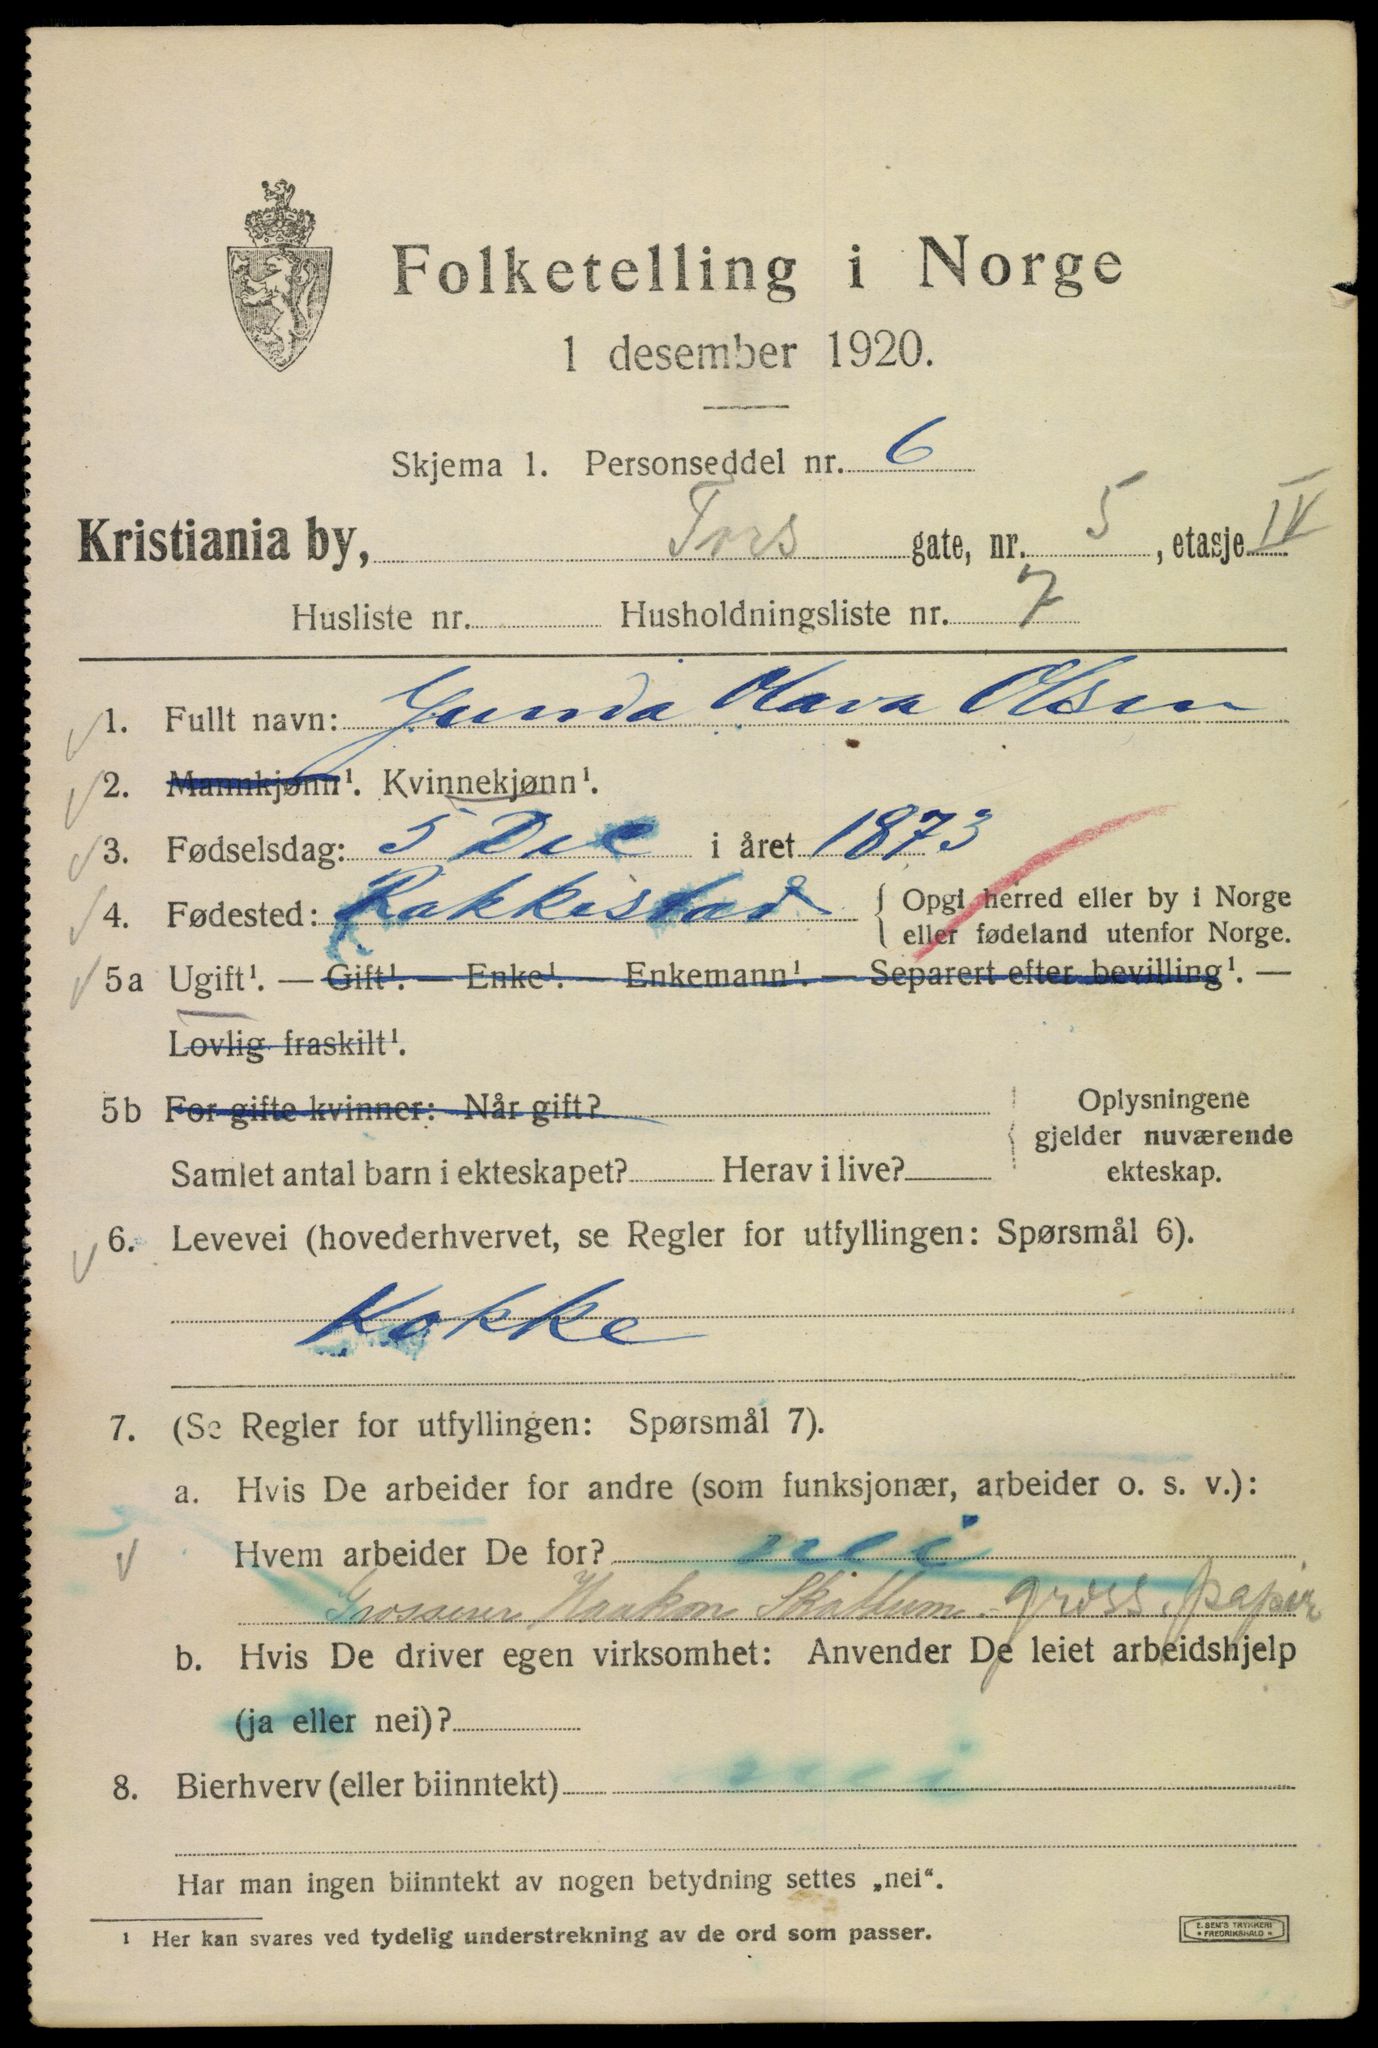 Folketelling i Norge
1 desember 1920.
Skjema 1. Personseddel nr. 6
Kristiania by, Tors gate, nr. 5, etasje IV
Husliste nr. Husholdningsliste nr. 7
1. Fullt navn: Gunda Olava Olsen
2. Mannkjønn¹. Kvinnekjønn¹.
3. Fødselsdag: 5 Dec i året 1873
4. Fødested: Rakkestad { Opgi herred eller by i Norge
eller fødeland utenfor Norge.
5a Ugift¹. — Gift¹. — Enke¹. — Enkemann¹. — Separert efter bevilling¹. —
Lovlig fraskilt¹.
5b For gifte kvinner: Når gift?
Samlet antal barn i ekteskapet? Herav i live?
Oplysningene
gjelder nuværende
ekteskap.
6. Levevei (hovederhvervet, se Regler for utfyllingen: Spørsmål 6).
Kokke
7. (Se Regler for utfyllingen: Spørsmål 7).
a. Hvis De arbeider for andre (som funksjonær, arbeider o. s. v.):
Hvem arbeider De for? nei
Grosserer Haakon Skattum. gross. papir
b. Hvis De driver egen virksomhet: Anvender De leiet arbeidshjelp
(ja eller nei)?
8. Bierhverv (eller biinntekt) nei
Har man ingen biinntekt av nogen betydning settes „nei“.
1 Her kan svares ved tydelig understrekning av de ord som passer.
E. SEM'S TRYKKERI
FREDRIKSHALD